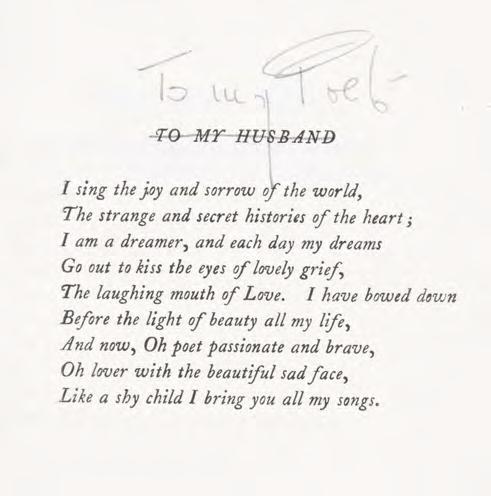 To my Poet
TO MY HUSBAND
I sing the joy and sorrow of the world,
The strange and secret histories of the heart;
I am a dreamer, and each day my dreams
Go out to kiss the eyes of lovely grief,
The laughing mouth of Love. I have bowed down
Before the light of beauty all my life,
And now, Oh poet passionate and brave,
Oh lover with the beautiful sad face,
Like a shy child I bring you all my songs.